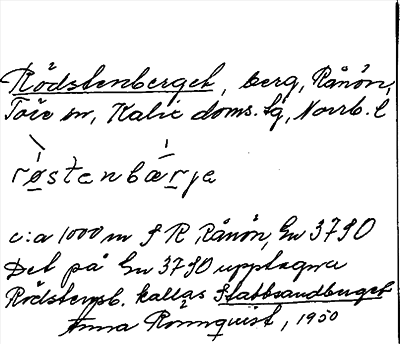 Rödstenberget, berg, Rånön,
Töre sn, Kalix doms. tg, Norrb. l
røstenbærje
c:a 1000 m S R Rånön, Gu 37 SO
Det på Gu 37 SO upptagna
Rödstensb. kallas Stabbsandberget
Anna Rönnquist, 1950